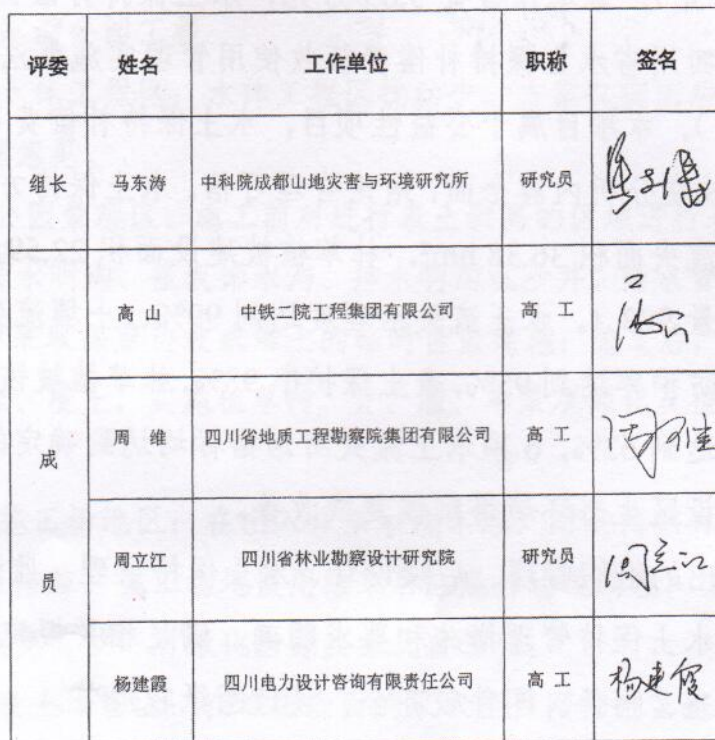 评委 姓名 工作单位 职称 签名
组长 马东涛 中科院成都山地灾害与环境研究所 研究员
高 山 中铁二院工程集团有限公司 高 工
成
周 维 四川省地质工程勘察院集团有限公司 高 工 周维
员
周立江 四川省林业勘察设计研究院 研究员 周立江
杨建霞 四川电力设计咨询有限责任公司 高 工 杨建霞